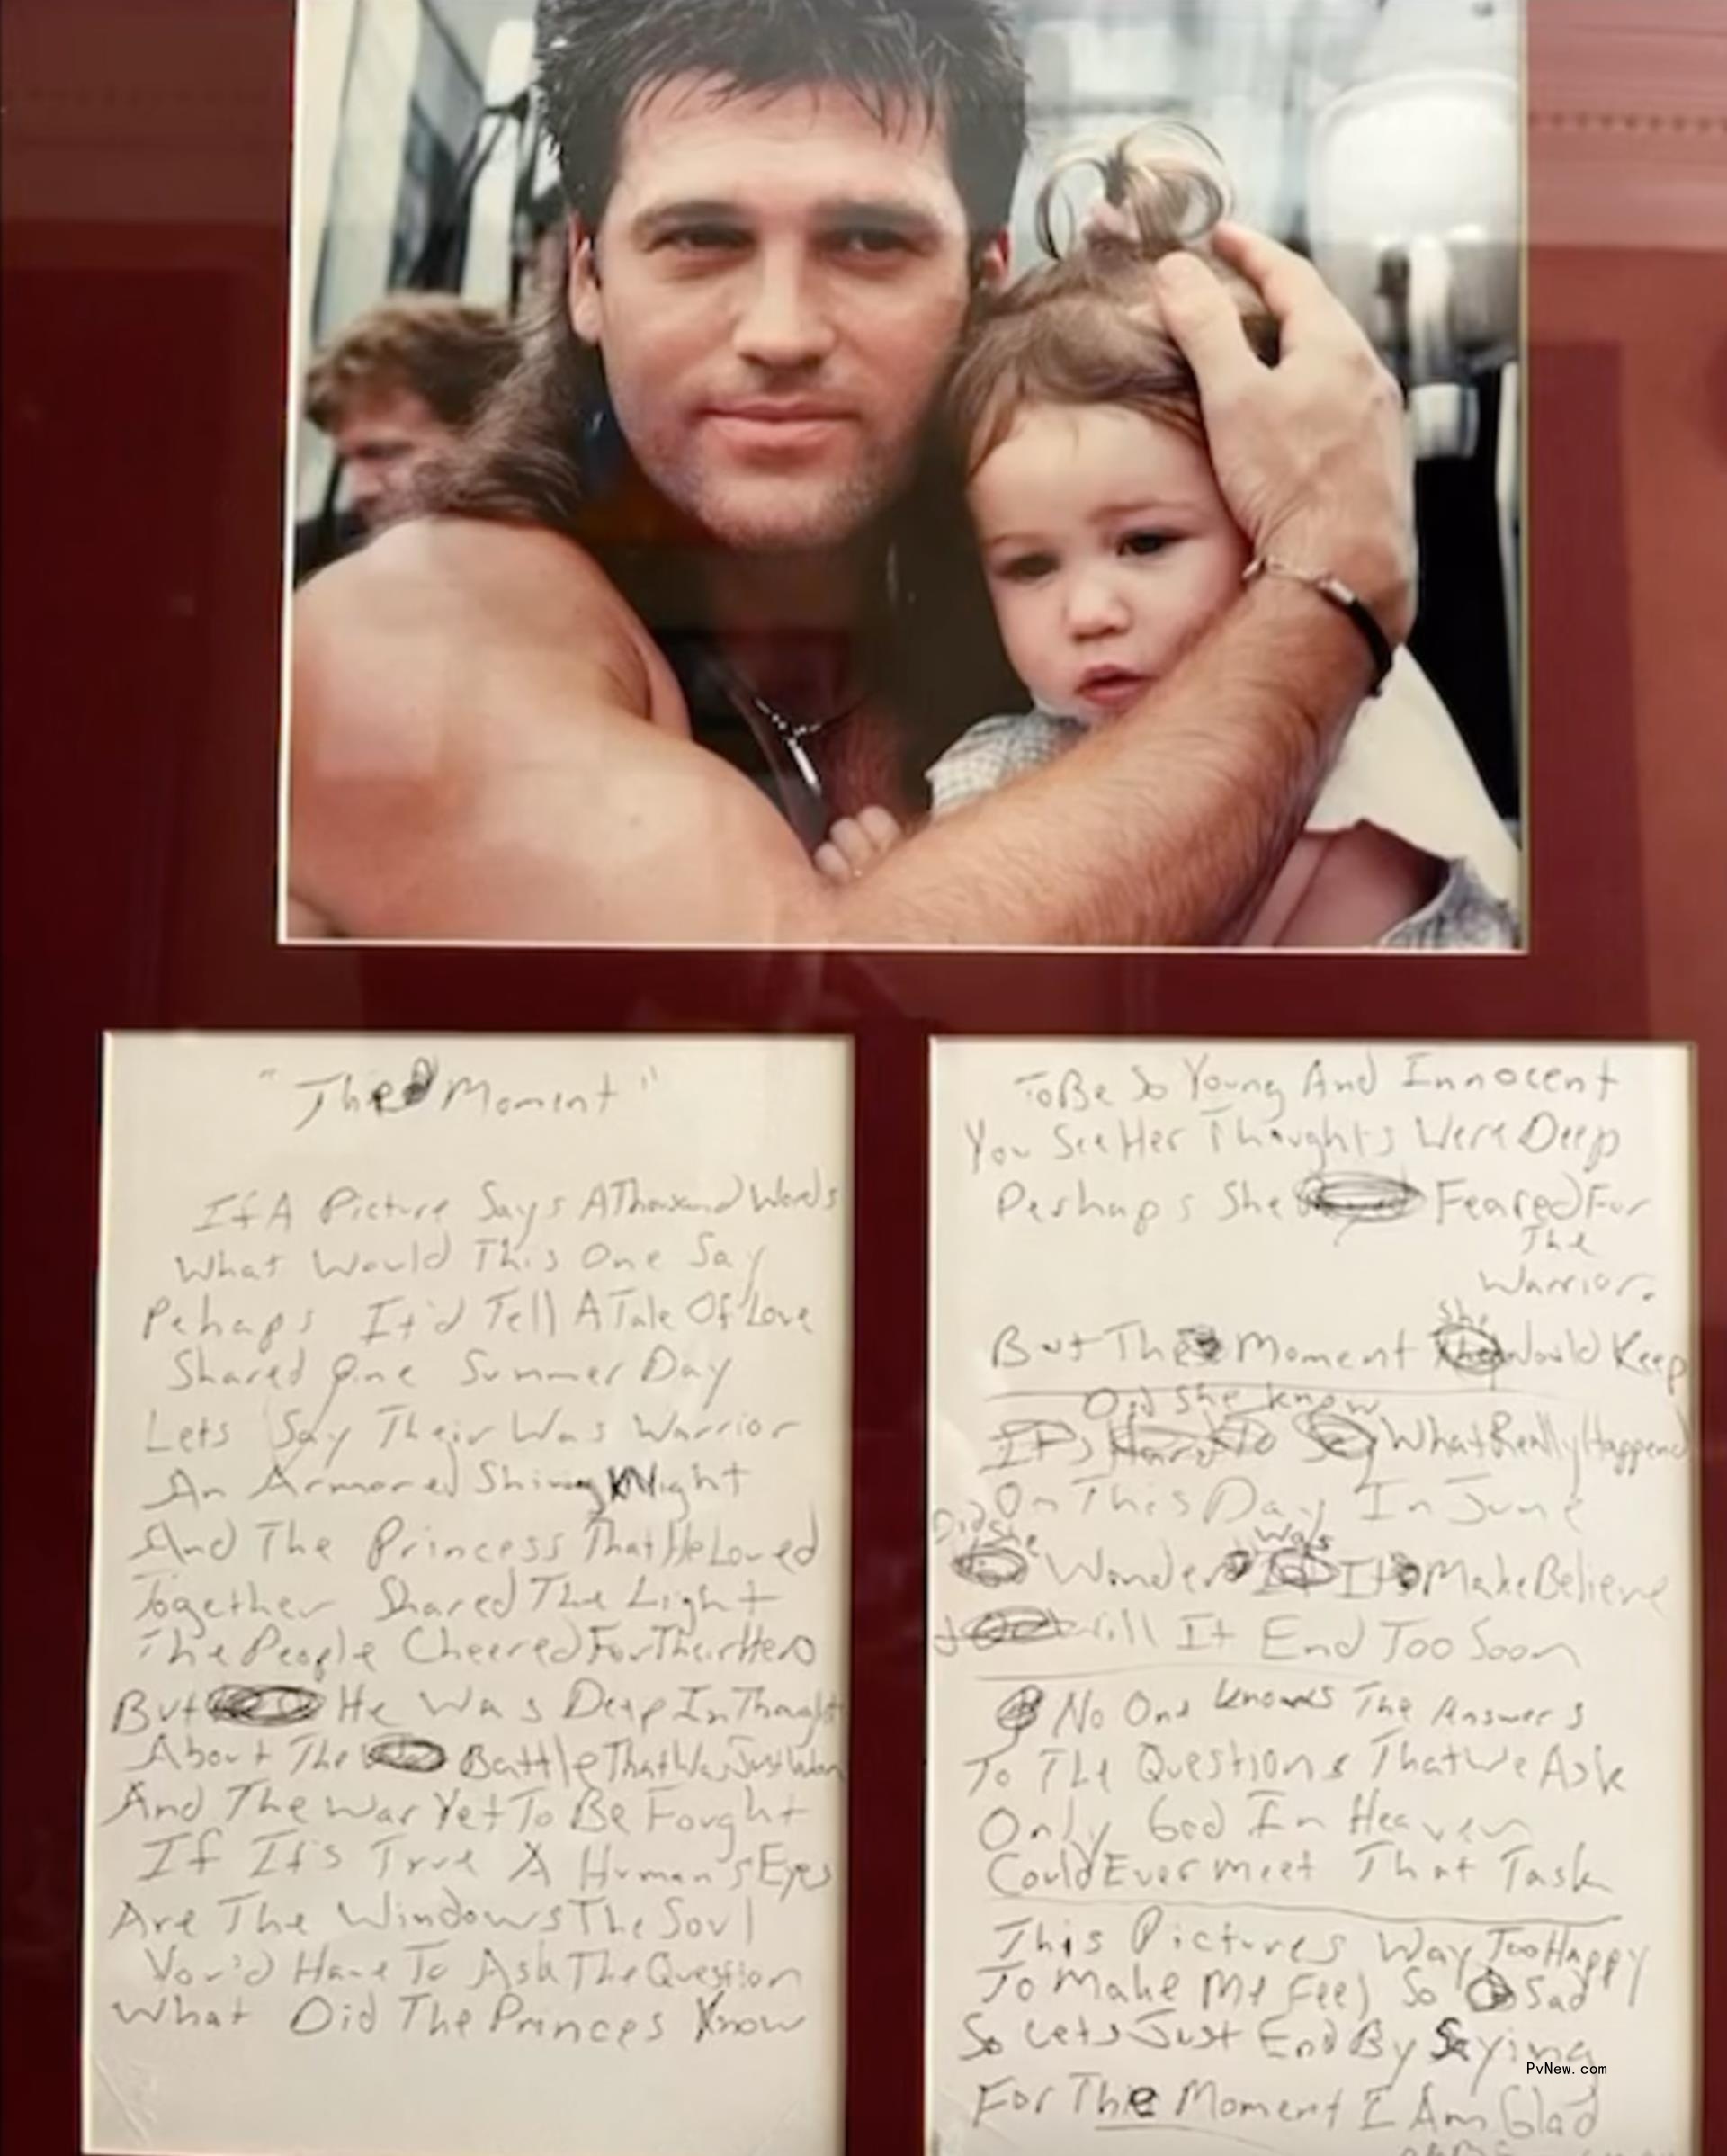 "The Moment"
If A Picture Says A Thousand Words
What Would This One Say
Pehaps It'd Tell A Tale Of Love
Shared One Summer Day
Lets Say Their Was Warrior
An Armored Shining Knight
And The Princess That He Loved
Together Shared The Light
The People Cheered For Their Hero
But He Was Deep In Thought
About The Battle That Was Just
And The War Yet To Be Fought
If It's True A Human's Eyes
Are The Windows The Soul
You'd Have To Ask The Question
What Did The Princes Know
To Be So Young And Innocent
You See Her Thoughts Were Deep
Perhaps She Feared For
The
Warrior.
But The Moment She Would Keep
Only She knew
What Really Happend
On This Day In June
Did She Wonder Was It Make Believe
Will It End Too Soon
No One knows The Answers
To The Questions That We Ask
Only God In Heaven
Could Ever Meet That Task
This Pictures Way Too Happy
To Make Me Feel So Sad
So Lets Just End By Saying
For The Moment I Am Glad
PvNew.com